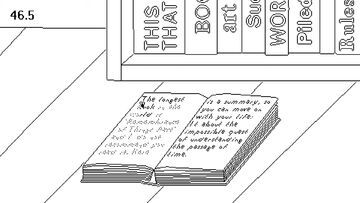 46.5
THIS
THAT
BOO
art
Suc
WOR
Piled
Rules
The longest
book in the
world is
Remembrance
of Things Past
and I do not
recommend you
read it. Here
is a summary, so
you can move on
with your life:
It about the
impossible quest
of understanding
the passage of
time.